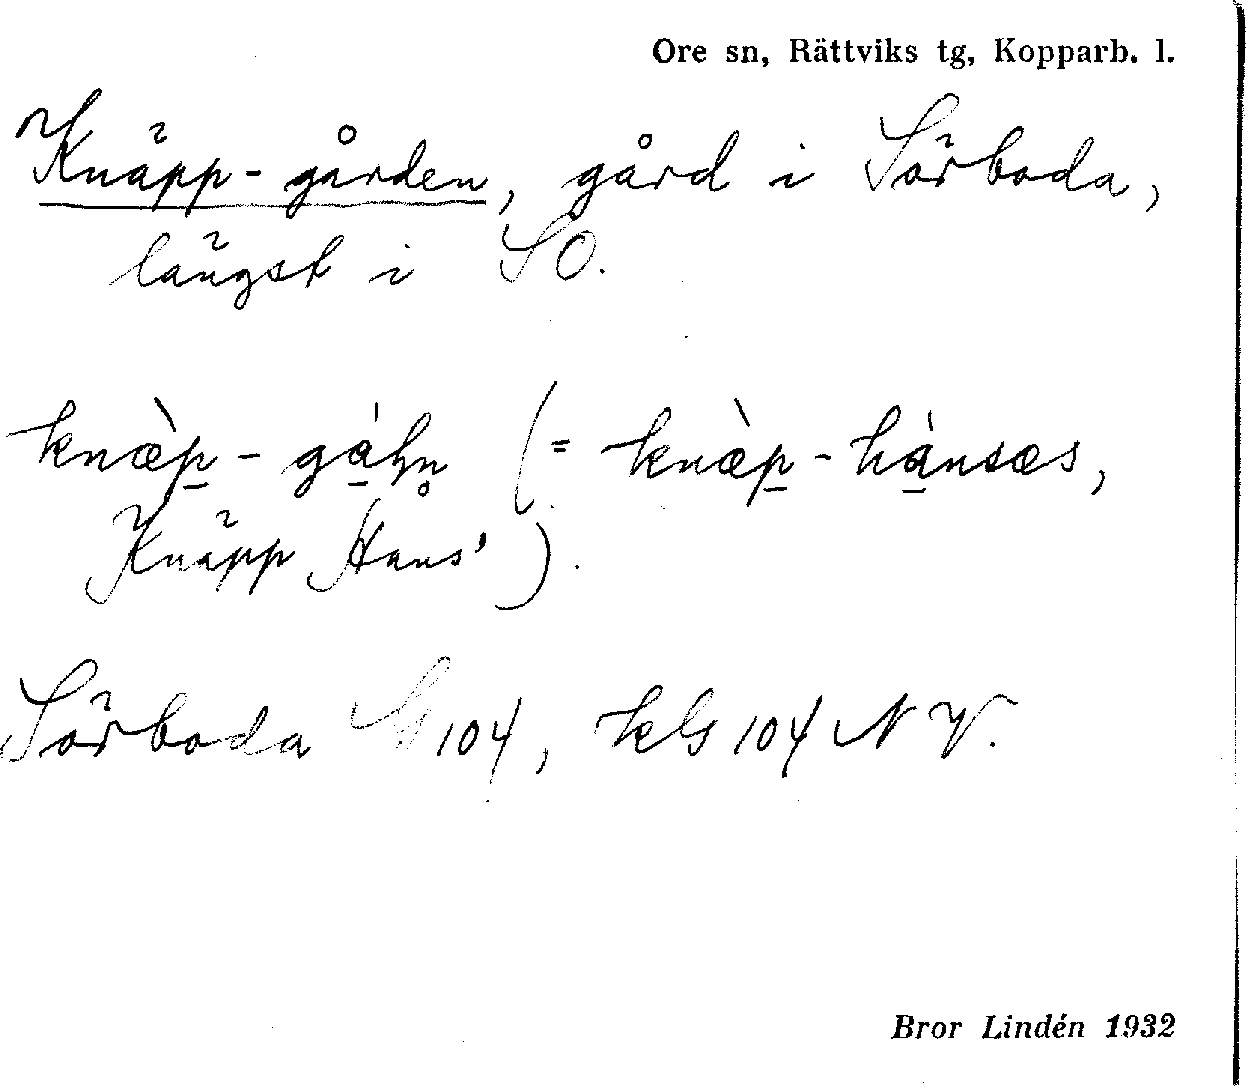 Ore sn, Rättviks tg, Kopparb. l.
Knäpp-gården, gård i Sörboda,
längst i SO.
knæ̀p̲-gá̲ḥn̥ (= knæ̀p̲-hà̲nsæs,
Knäpp Hans')
Sörboda G 104, kG 104 NV.
Bror Lindén 1932